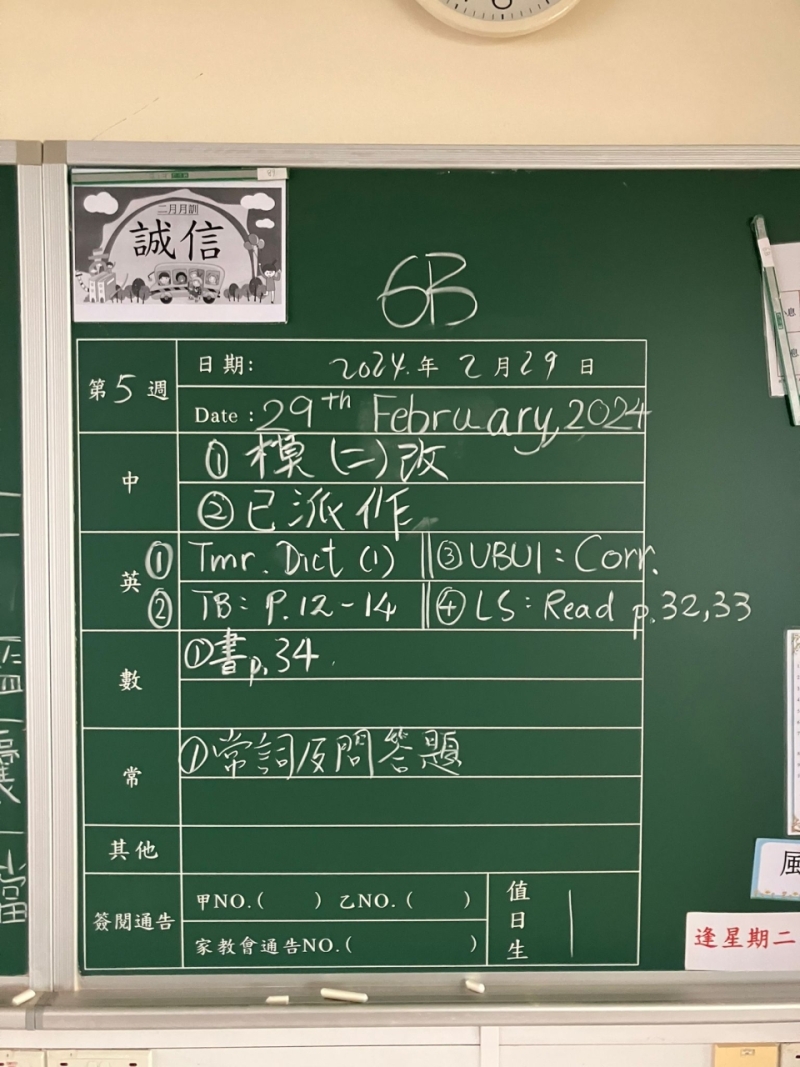 二月月訓
誠信
6B
第5週
日期: 2024.年 2月29日
Date : 29th February, 2024
中
① 模(二)改
② 已派作
英
① Tmr. Dict (1) ③ UBU1: Corr.
② TB: P.12-14 ④ LS: Read p.32,33
數
① 書p.34
常
① 常詞及問答題
其他
簽閱通告
甲NO.( ) 乙NO.( )
家教會通告NO.( )
值日生 1
風
逢星期二